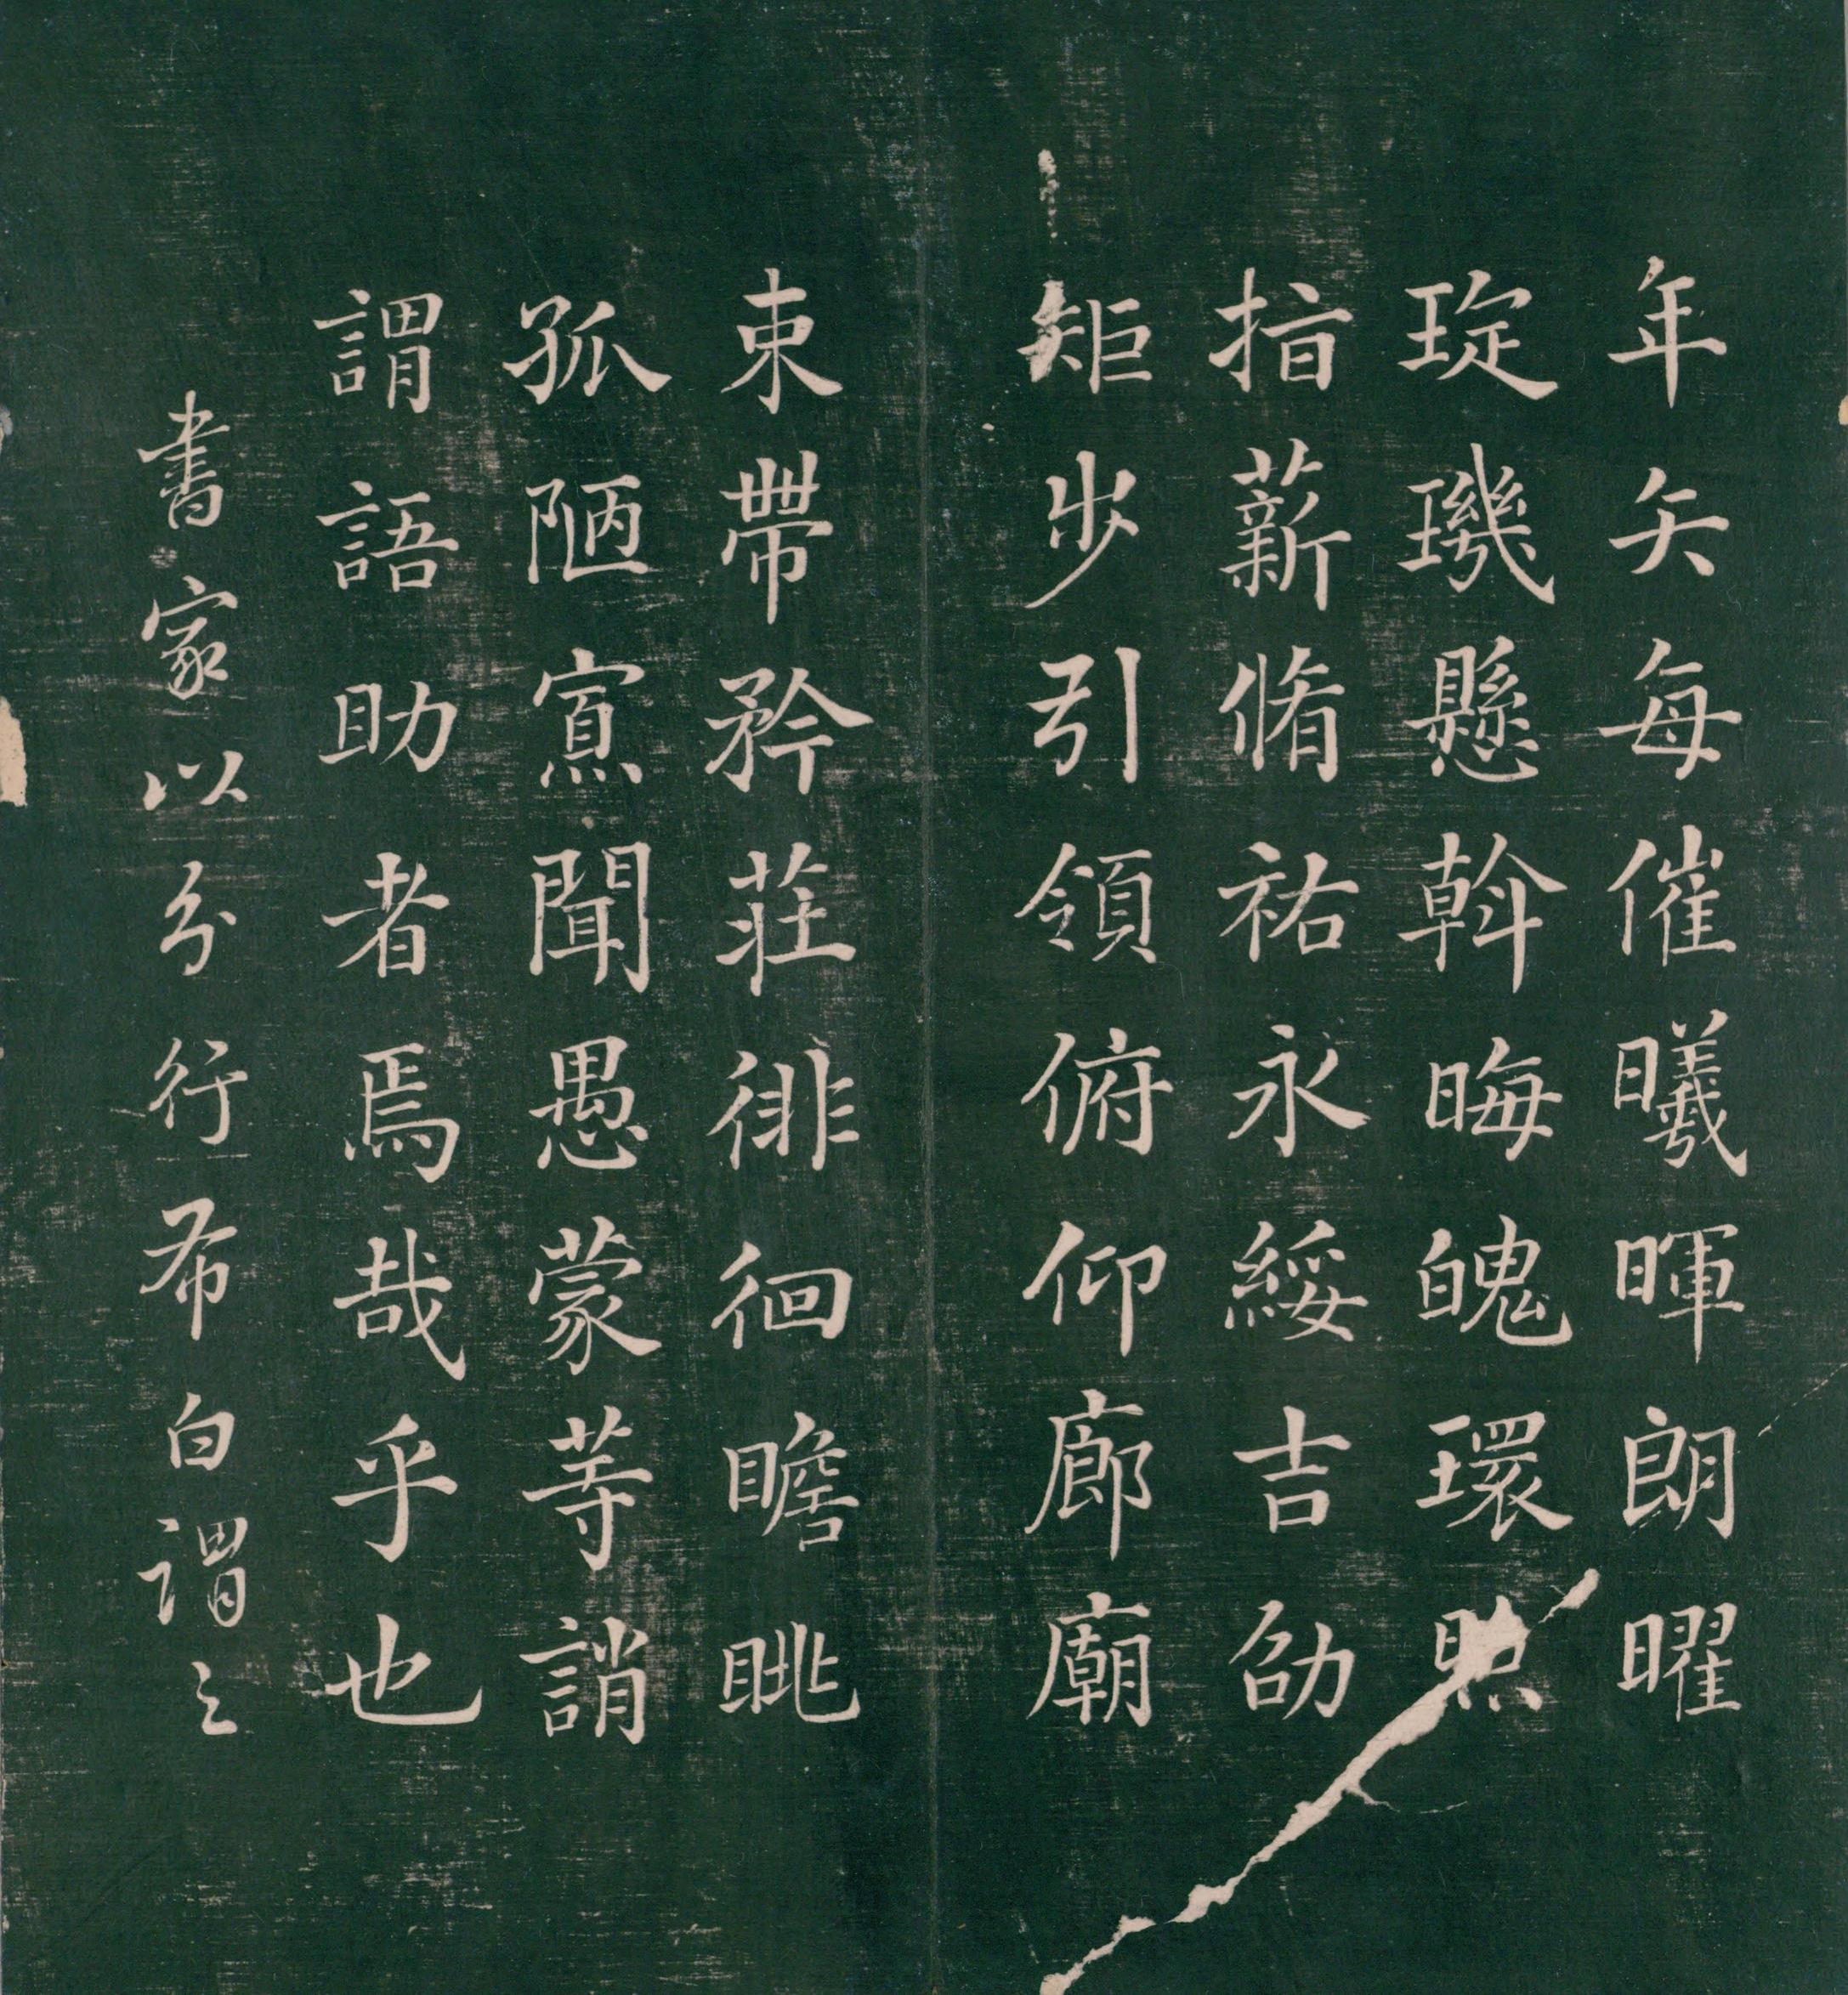 年矢每催曦暉朗曜
琁璣懸斡晦魄環照
指薪脩祐永綏吉劭
矩步引領俯仰廊廟
束帶矜莊徘徊瞻眺
孤陋寡聞愚蒙等誚
謂語助者焉哉乎也
書家以分行布白謂之